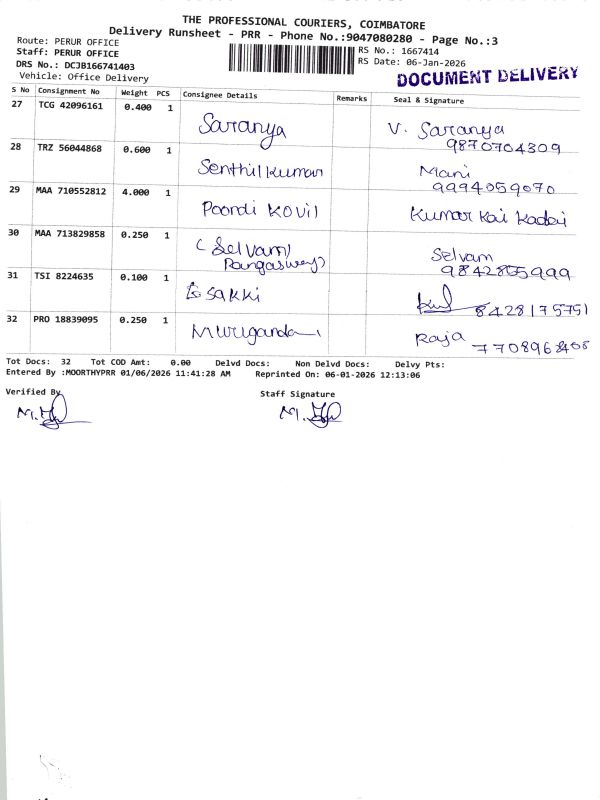 THE PROFESSIONAL COURIERS, COIMBATORE
Delivery Runsheet - PRR - Phone No.:9047080280 - Page No.:3
Route: PERUR OFFICE
Staff: PERUR OFFICE
DRS No.: DCJB166741403
Vehicle: Office Delivery
RS No.: 1667414
RS Date: 06-Jan-2026
DOCUMENT DELIVERY
S No Consignment No Weight PCS Consignee Details Remarks Seal & Signature
27 TCG 42096161 0.400 1 Saranya V. Saranya
9870704309
28 TRZ 56044868 0.600 1 Senthil kumar Mani
9994059070
29 MAA 710552812 4.000 1 Poondi Kovil Kumar Kai Kadai
30 MAA 713829858 0.250 1 (Selvam) Selvam
31 TSI 8224635 0.100 1 Esakki 8428175751
32 PRO 18839095 0.250 1 Raja
Tot Docs: 32 Tot COD Amt: 0.00 Delvd Docs: Non Delvd Docs: Delvy Pts:
Entered By :MOORTHYPRR 01/06/2026 11:41:28 AM Reprinted On: 06-01-2026 12:13:06
Verified By Staff Signature